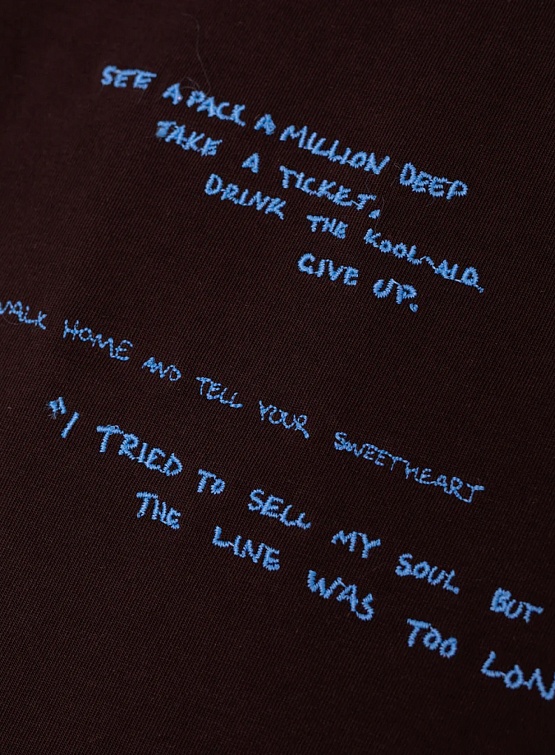 SEE A PACK A MILLION DEEP
TAKE A TICKET.
DRINK THE KOOL-AID.
GIVE UP.
WALK HOME AND TELL YOUR SWEETHEART
"I TRIED TO SELL MY SOUL BUT
THE LINE WAS TOO LON